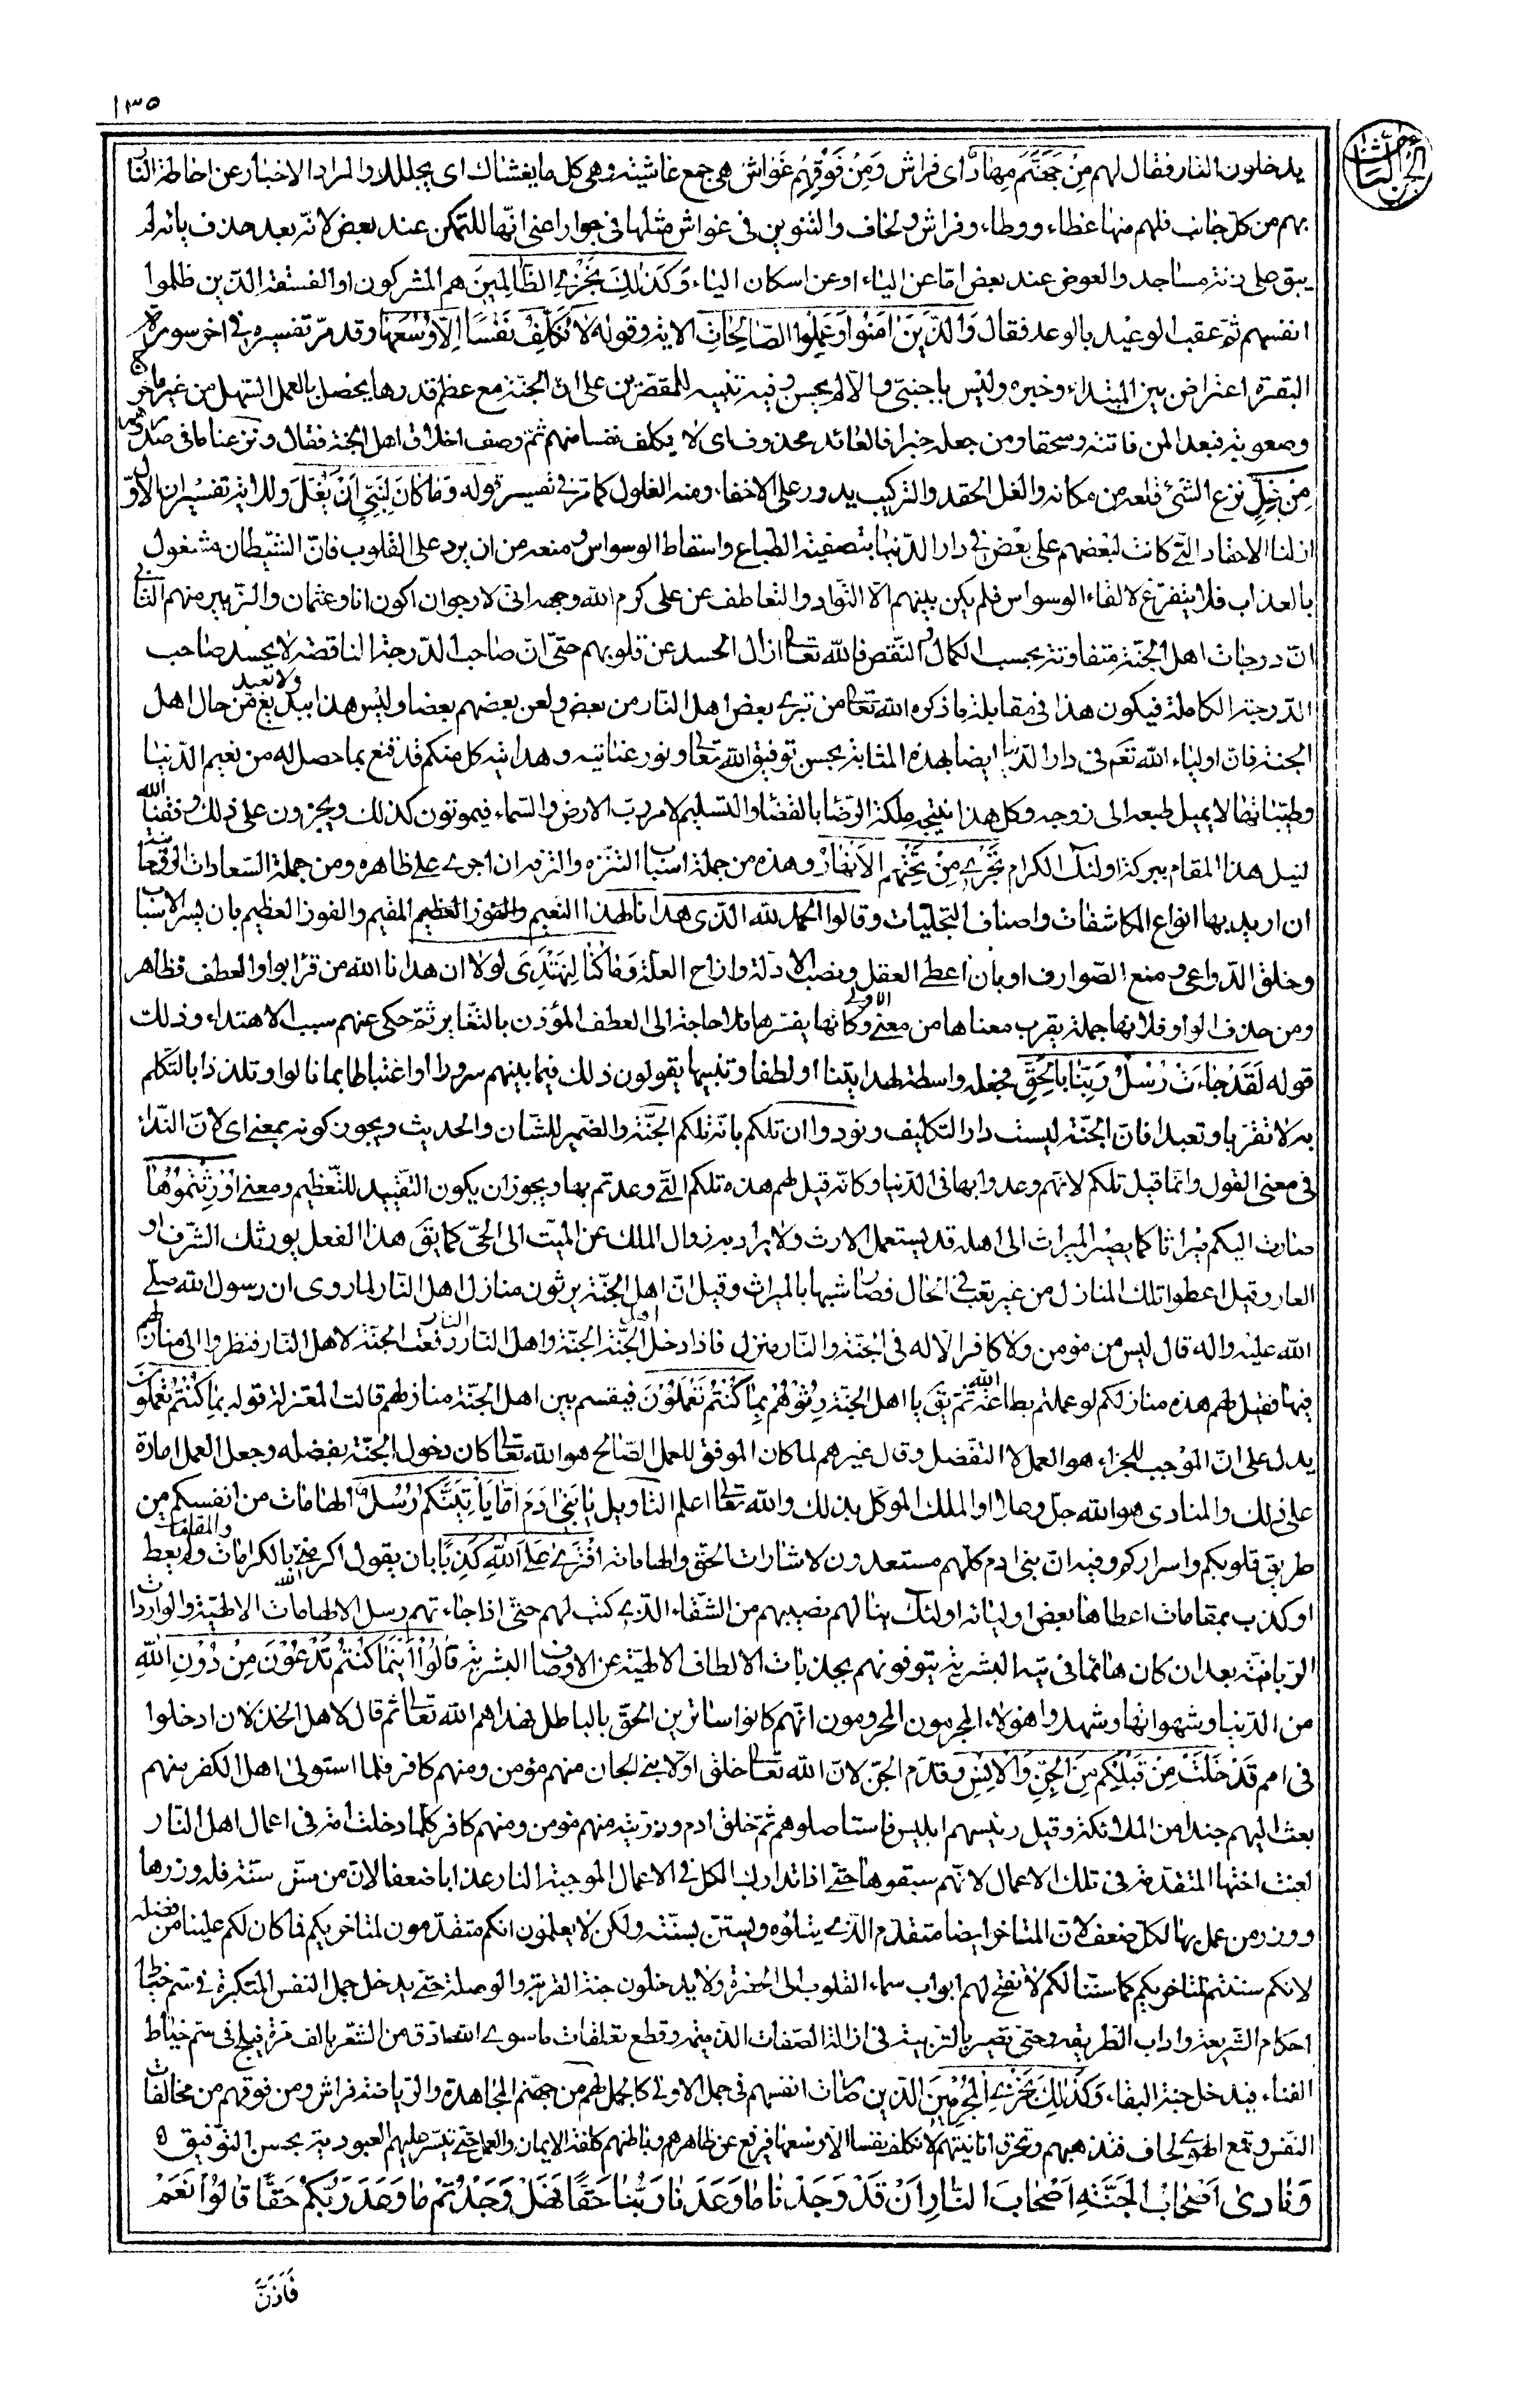 ١٣٥
الجزء الثامن
يدخلون النار فقال لهم مِنْ جَهَنَّمَ مِهَادٌ اى فراش وَمِنْ فَوْقِهِمْ غَوَاشٍ هى جمع غاشية وهى كل ما يغشاك اى يجللك والمراد الاخبار عن احاطة النار
بهم من كل جانب فلهم منها غطاء ووطاء وفراش ولحاف والتنوين فى غواش مثلها فى جوار اعنى انها للتمكن عند بعض لانه بعد حذف يائه لم
يبق على زنة مساجد والعوض عند بعض اما عن الياء او عن اسكان الياء وَكَذٰلِكَ نَجْزِى الظَّالِمِينَ هم المشركون او الفسقة الذين ظلموا
انفسهم ثم عقب الوعيد بالوعد فقال وَالَّذِينَ اٰمَنُوا وَعَمِلُوا الصَّالِحَاتِ الاية وقوله لَا نُكَلِّفُ نَفْسًا اِلَّا وُسْعَهَا وقد مر تفسيره فى اخر سورة
البقرة اعتراض بين المبتداء وخبره وليس باجنبى والا لم يحسن وفيه تنبيه للمقصرين على ان الجنة مع عظم قدرها يحصل بالعمل السهل من غير ما حرج
وصعوبة فبعدا لمن فاتته وسحقا ومن جعله خبرا فالعائد محذوف اى لا يكلف نفسا منهم ثم وصف اخلاق اهل الجنة فقال ونزعنا ما فى صدورهم
مِنْ غِلٍّ نزع الشئ قلعه من مكانه والغل الحقد والتركيب يدور على الاخفاء ومنه الغلول كما مر فى تفسير قوله وَمَا كَانَ لِنَبِىٍّ اَنْ يَغُلَّ وللاية تفسيران الاول
ازلنا الاحقاد التى كانت لبعضهم على بعض فى دار الدنيا بتصفية الطباع واسقاط الوسواس ومنعه من ان يرد على القلوب فان الشيطان مشغول
بالعذاب فلا يتفرغ لالقاء الوسواس فلم يكن بينهم الا التواد والتعاطف عن على كرم الله وجهه انى لارجو ان اكون انا وعثمان والزبير منهم الثانى
ان درجات اهل الجنة متفاوتة بحسب الكمال والنقص فالله تعالى ازال الحسد عن قلوبهم حتى ان صاحب الدرجة الناقصة لا يحسد صاحب
الدرجة الكاملة فيكون هذا فى مقابلة ما ذكره الله تعالى من تبرى بعض اهل النار من بعض ولعن بعضهم بعضا وليس هذا ببديع ولا بعيد من حال اهل
الجنة فان اولياء الله تعم فى دار الدنيا ايضا بهذه المثابة بحسن توفيق الله تعالى ونور عنايته وهدايته كل منكم قد قنع بما حصل له من نعيم الدنيا
وطيباتها لا يميل طبعه الى زوجه وكل هذا نتيجة ملكة الرضا بالقضاء والتسليم لامر رب الارض والسماء فيموتون كذلك ويجزون على ذلك وفقنا الله
لنيل هذا المقام ببركة اولئك الكرام تَجْرِى مِنْ تَحْتِهِمُ الْاَنْهَارُ وهذه من جملة اسباب التنزه والترفه ان اجرى على ظاهره ومن جملة السعادات الروحانية
ان اريد بها انواع المكاشفات واصناف التجليات وقالوا الحمد لله الذى هدانا لهذا النعيم والفوز العظيم المقيم والفوز العظيم بان يسر الاسباب
وخلق الدواعى ومنع الصوارف او بان اعطى العقل ونصب الادلة وازاح العلة وَمَا كُنَّا لِنَهْتَدِىَ لولا ان هدانا الله من قرا بواو العطف فظاهر
ومن حذف الواو فلانها جملة يقرب معناها من معنى الاولى وكانها يفسرها فلا حاجة الى العطف المؤذن بالتغاير ثم حكى عنهم سبب الاهتداء وذلك
قوله لَقَدْ جَاءَتْ رُسُلُ رَبِّنَا بِالْحَقِّ فجعله واسطة لهدايتنا او لطفا وتنبيها يقولون ذلك فيما بينهم سرورا واغتباطا بما نالوا وتلذذا بالتكلم
به لا تقربا وتعبدا فان الجنة ليست دار التكليف ونودوا ان تلكم بانه تلكم الجنة والضمير للشان والحديث ويجوز كونه بمعنى اى لان النداء
فى معنى القول وانما قيل تلكم لانهم وعدوا بها فى الدنيا وكانه قيل لهم هذه تلكم التى وعدتم بها ويجوز ان يكون التقييد للتعظيم ومعنى اُورِثْتُمُوهَا
صارت اليكم ميراثا كما يصير الميراث الى اهله قد يستعمل الارث ولا يراد به زوال الملك عن الميت الى الحى كما يق هذا الفعل يورثك الشرف او
العار وقيل اعطوا تلك المنازل من غير تعب فى الحال فصار شبيها بالميراث وقيل ان اهل الجنة يرثون منازل اهل النار لما روى ان رسول الله صلى
الله عليه واله قال ليس من مؤمن ولا كافر الا له فى الجنة والنار منزل فاذا دخل اهل الجنة الجنة واهل النار النار رفعت الجنة لاهل النار فنظروا الى منازلهم
فيها فقيل لهم هذه منازلكم لو عملتم بطاعة الله ثم يق يا اهل الجنة رثوهم بِمَا كُنْتُمْ تَعْمَلُونَ فيقسم بين اهل الجنة منازلهم قالت المعتزلة قوله بِمَا كُنْتُمْ تَعْمَلُونَ
يدل على ان الموجب للجزاء هو العمل لا التفضل وقال غيرهم لما كان الموفق للعمل الصالح هو الله تعالى كان دخول الجنة بفضله وجعل العمل امارة
على ذلك والمنادى هو الله جل وعلا او الملك الموكل بذلك والله تعالى اعلم التاويل يَا بَنِى اٰدَمَ اِمَّا يَاْتِيَنَّكُمْ رُسُلٌ الهامات من انفسكم من
طريق قلوبكم واسراركم وفيه ان بنى ادم كلهم مستعدون لاشارات الحق والهاماته افْتَرٰى عَلَى اللهِ كَذِبًا بان يقول اكرمنى الله بالكرامات والمقامات ولم يعط
او كذب بمقامات اعطاها بعض اوليائه اولئك ينالهم نصيبهم من الشقاء الذى كتب لهم حتى اذا جاءتهم رسل الالهامات الالهية والواردات
الربانية بعد ان كان هائما فى تيه البشرية يتوفونهم بجذبات الالطاف الالهية عن الاوصاف البشرية قَالُوا اَيْنَمَا كُنْتُمْ تَدْعُونَ مِنْ دُونِ اللهِ
من الدنيا وشهواتها وشهدوا هؤلاء المجرمون المحرومون انهم كانوا ساترين الحق بالباطل فهداهم الله تعالى ثم قال لاهل الخذلان ادخلوا
فى امم قَدْ خَلَتْ مِنْ قَبْلِكُمْ مِنَ الْجِنِّ وَالْاِنْسِ وقدم الجن لان الله تعالى خلق اولا بنى الجان منهم مؤمن ومنهم كافر فلما استولى اهل الكفر منهم
بعث اليهم جندا من الملائكة وقيل رئيسهم ابليس فاستاصلوهم ثم خلق ادم وذريته منهم مؤمن ومنهم كافر كلما دخلت امة فى اعمال اهل النار
لعنت اختها المتقدمة فى تلك الاعمال لانهم سبقوها حتى اذا تدارك الكل فى الاعمال الموجبة النار عذابا ضعفا لان من سن سنة فله وزرها
ووزر من عمل بها لكل ضعف لان المتاخر ايضا متقدم الذى يتلوه ويستن بسنته ولكن لا يعلمون انكم متقدمون لمتاخريكم فما كان لكم علينا من فضله
لانكم سننتم لمتاخريكم كما سننا لكم لا تفتح لهم ابواب سماء القلوب الى الحضرة ولا يدخلون جنة القربة والوصلة حتى يدخل جمل النفس المتكبرة فى سم خياط
احكام الشريعة واداب الطريقة وحتى تصير بالتربية فى ازالة الصفات الذميمة وقطع تعلقات ما سوى الله ادق من الشعر بالف مرة فيلج فى سم خياط
الفناء فيدخل جنة البقاء وَكَذٰلِكَ نَجْزِى الْمُجْرِمِينَ الذين صارت انفسهم فى جمل الاولى كالجمل لهم من جهنم المجاهدة والرياضة فراش ومن فوقهم من مخالفات
النفس وقمع الهوى لحاف فتذهبهم وتحرق انانيتهم لا نكلف نفسا الا وسعها فيرفع عن ظاهرهم وباطنهم كلفة الايمان والعمل حتى تيسر عليهم العبودية بحسن التوفيق ه
وَنَادٰى اَصْحَابُ الْجَنَّةِ اَصْحَابَ النَّارِ اَنْ قَدْ وَجَدْنَا مَا وَعَدَنَا رَبُّنَا حَقًّا فَهَلْ وَجَدْتُمْ مَا وَعَدَ رَبُّكُمْ حَقًّا قَالُوا نَعَمْ
فَاَذَّنَ